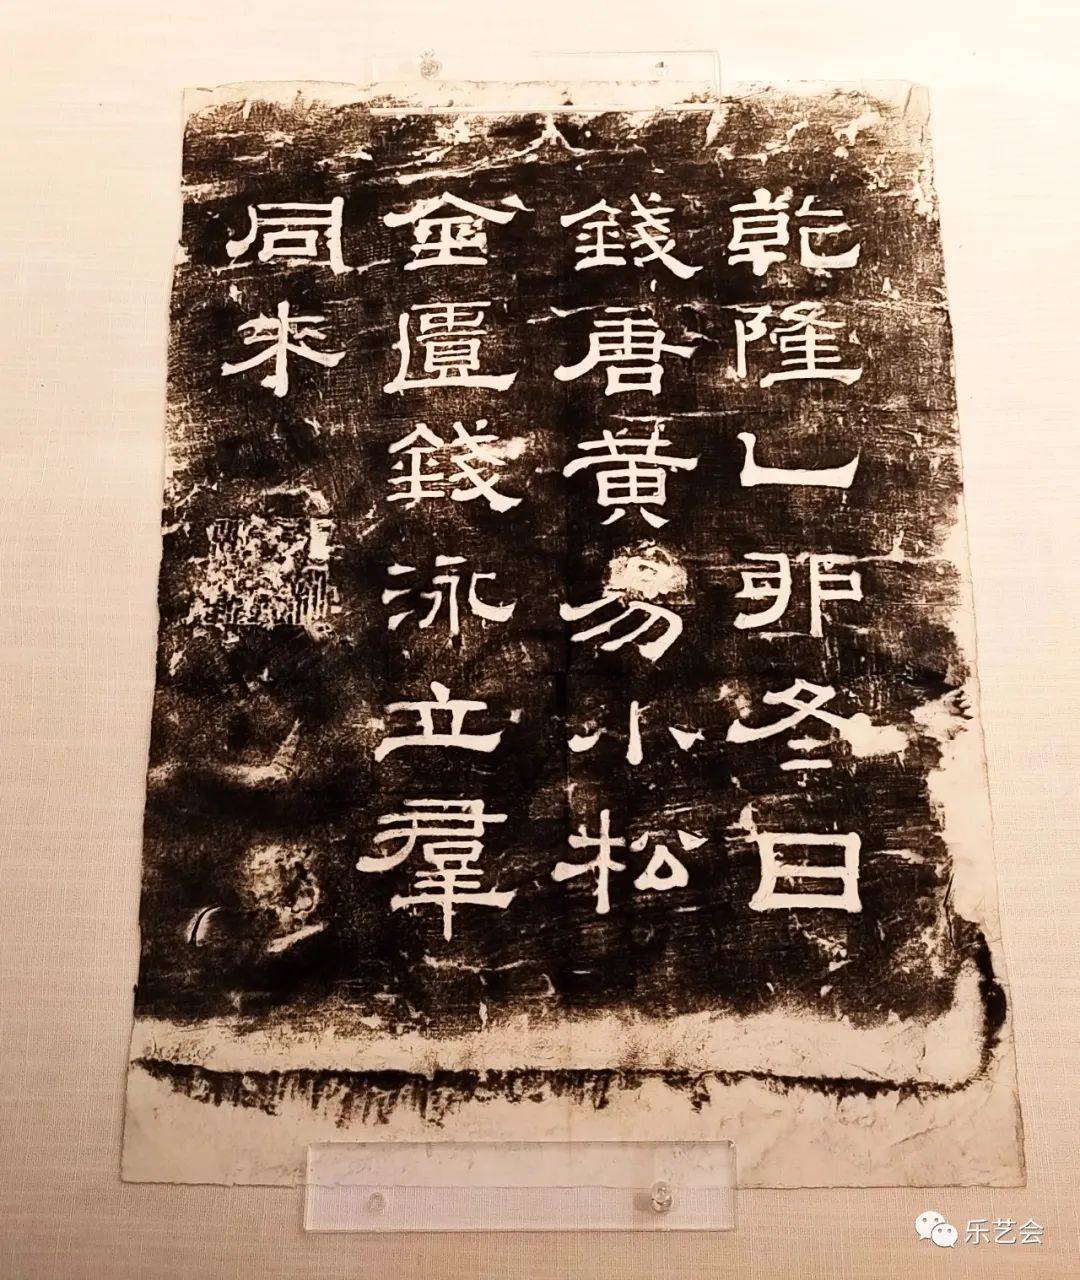 乾隆乙卯冬日
錢唐黃易小松
金匱錢泳立羣
同來
乐艺会